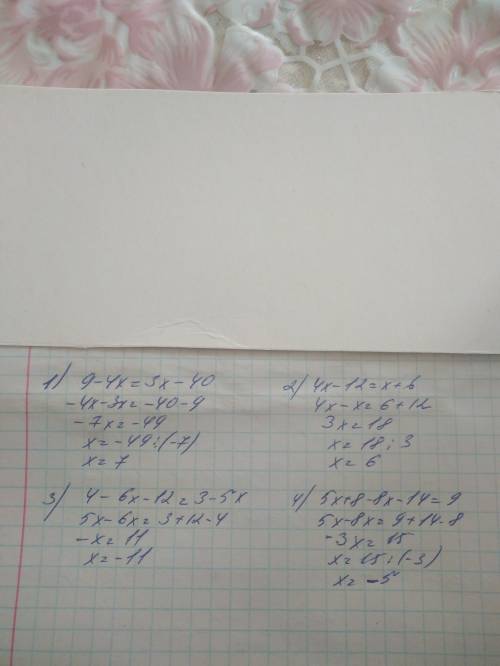 1) 9-4x=3x-40
-4x-3x=-40-9
-7x=-49
x=-49:(-7)
x=7
2) 4x-12=x+6
4x-x=6+12
3x=18
x=18:3
x=6
3) 4-6x-12=3-5x
5x-6x=3+12-4
-x=11
x=-11
4) 5x+8-8x-14=9
5x-8x=9+14-8
-3x=15
x=15:(-3)
x=-5